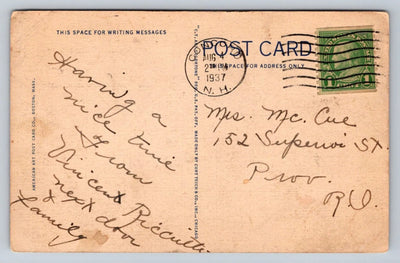 THIS SPACE FOR WRITING MESSAGES
POST CARD
THIS SPACE FOR ADDRESS ONLY
AUG
1937
N. H.
Having a
nice time
from
Vincent Ricciutti
next door
& family
Mrs. Mc. Cue
152 Superior St.
Prov.
R.I.
AMERICAN ART POST CARD CO., BOSTON, MASS.